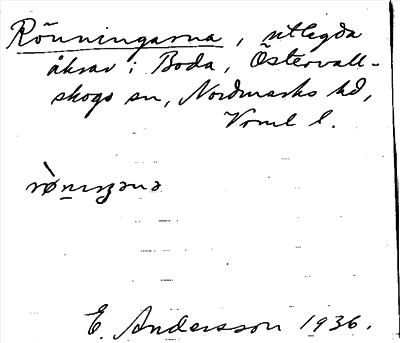 Rönningarna, utlagda
åkrar i Boda, Östervall-
skogs sn, Nordmarks hd,
Vrml l.
E. Andersson 1936.